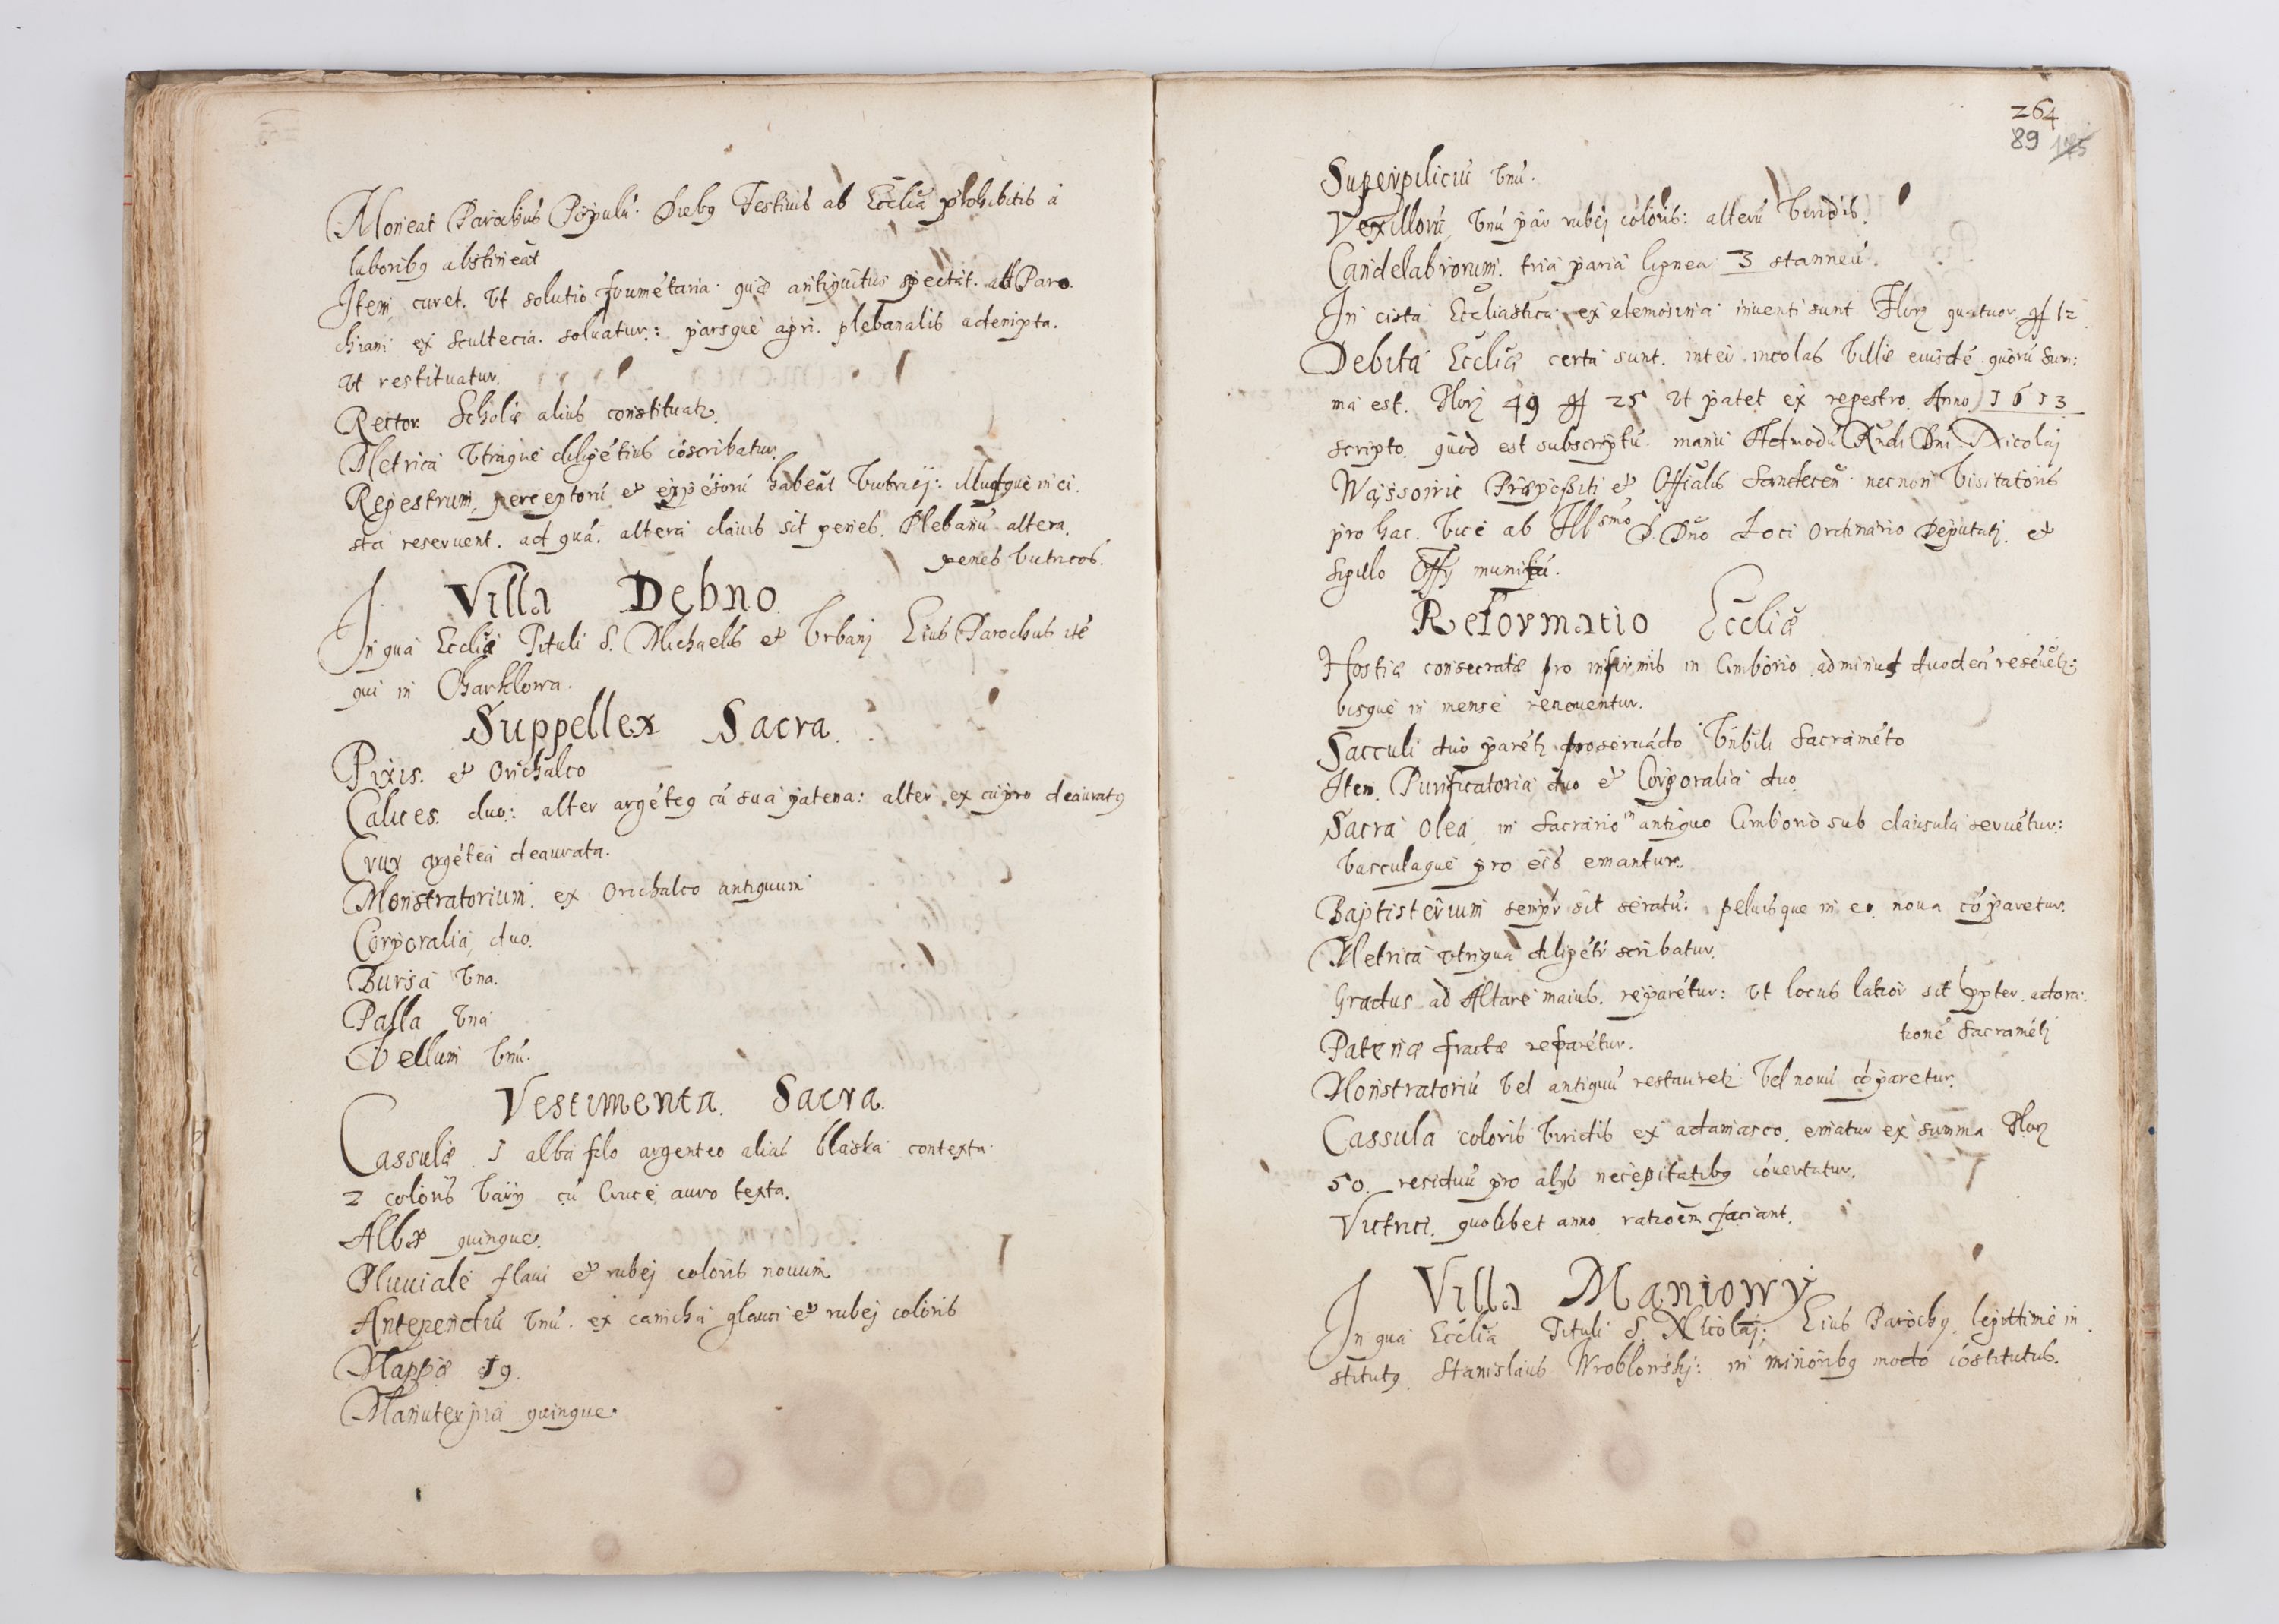 Moneat Parochus Populū. Diebꝯ Festiuis ab Ecclīa prohibitis à
laboribꝯ abstineāt
Item curet. Vt solutio frumētaria. quae antiquitus spectāt. ad Paro.
chiam ex scultecia. soluatur: parsque agri. plebanalis adempta.
vt restituatur.
Rector Scholæ alius constituatr.
Metrica vtraque diligētius cōscribatur.
Regestrum perceptorū et expēsorū habeāt Vitrici: illudque in ci.
sta reseruent. ad quā. altera clauis sit penes. Plebanū altera.
penes vitricos.
Villa Dębno
In qua Ecclīa Tituli S. Michaelis et Vrbanj Eius Parochus itē
qui in Charklowa.
Suppellex Sacra.
Pixis. et Orichalco
Calices. duo: alter argēteꝯ cū sua patena: alter ex cupro deauratꝯ
Crux argētea deaurata.
Monstratorium. ex Orichalco antiquum
Corporalia duo.
Bursa vna.
Palla vna
Vellum vnū.
Vestimenta Sacra.
Cassulæ 1 alba filo argenteo alias blaska contexta
2 coloris varij cū Cruce auro texta.
Albæ quinque.
Pluuiale flaui et rubej coloris nouum
Antependiū vnū. ex camcha glauci et rubej coloris
Mappæ 19.
Manutergia quinque
264
89
Superpiliciū vnū.
Vexillorū vnū par rubej coloris: alterū viridis.
Candelabrorum. tria paria lignea 3 stanneū.
In cista Eccliastica ex elemosina inuenti sunt Flor quatuor gr 12
Debita Eccliæ certa sunt. inter incolas villæ eiusdē quorū Sum:
ma est. Flor 49 gr 25 vt patet ex regestro. Anno 1613
scripto. quod est subscriptū. manu Admodū Rndi Dni. Nicolaj
Præpositi et Officialis Sandecen necnon Visitatoris
pro hac. vice ab Illsmo D. Dno Loci Ordinario Deputati. et
sigillo Offy munitū.
Reformatio Eccliæ
Hostiæ consecratæ pro infirmis in Cimborio ad minus duodeci reseruētr:
bisque in mense renouentur.
Sacculi duo parētr pro seruādo Vnbili Sacramēto
Item. Purificatoria duo et Corporalia duo
Sacra Olea in Sacrario in antiquo Cimborio sub clausula seruētur:
vasculaque pro eis emantur.
Baptisterium sempr sit seratū: peluisque in eo noua cōparetur.
Metrica vtriqua diligētr scribatur.
Gradus ad Altare maius. reparētur: vt locus latior sit ppter. adora:
tionē Sacramēti
Patenæ fractæ reparētur.
Monstratoriū vel antiquū restauretr vel nouū cōparetur.
Cassula coloris viridis ex adamasco. ematur ex summa Flor
50. residuū pro alijs necessitatibꝯ cōuertatur.
Victrici. quolibet anno rationem faciant.
Villa Maniowy
In qua Ecclīa Tituli S. Nicolaj: Eius Parochꝯ legittime in
stitutꝯ Stanislaus Wroblowskj: in minoribꝯ modo cōstitutus.